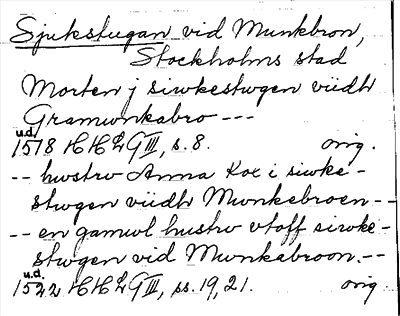 Sjukstugan vid Munkbron,
Stockholms stad
Morten j siwkestwgen widh
Gramwnkabro ---
u.d.
1518 HH2GIII, s. 8. orig.
-- hwstrv Anna Kox i siwke-
stwgen widh Mwnkebroen --
-- en gamwl hustrv vtaff siwke-
stwgen vid Mwnkabroon. --
u.d.
1522 HH2GIII, ss. 19, 21. orig.